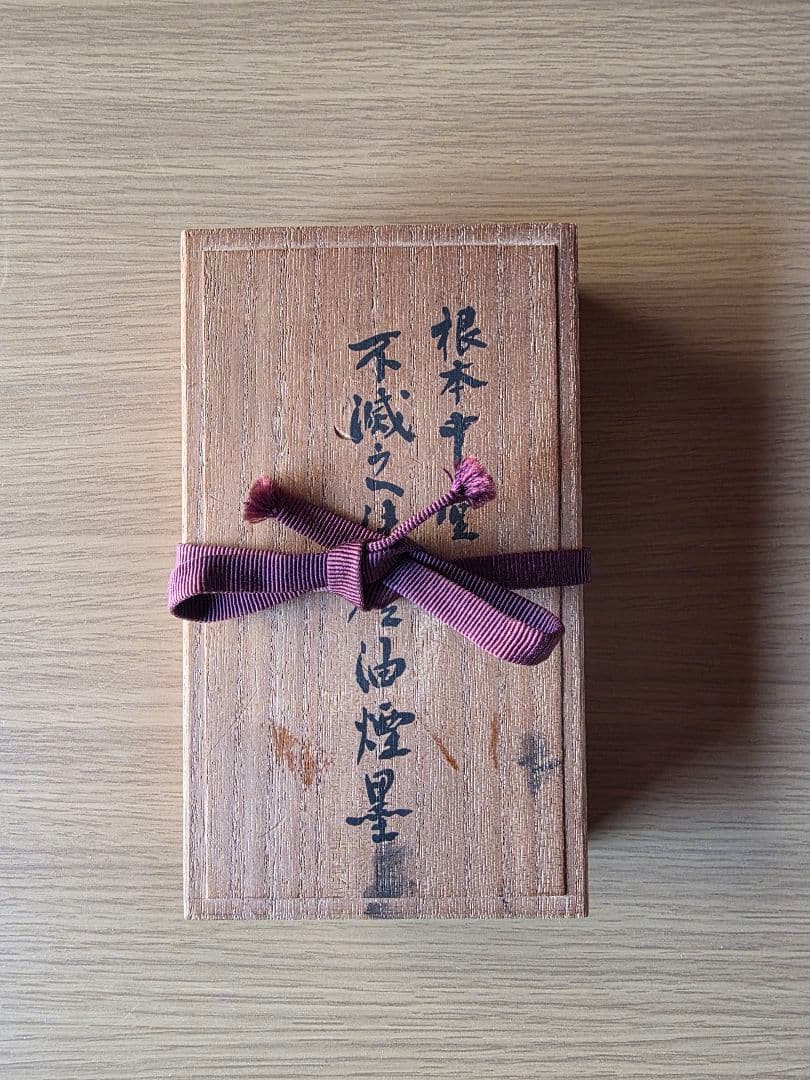 根本中堂
不滅之油煙墨